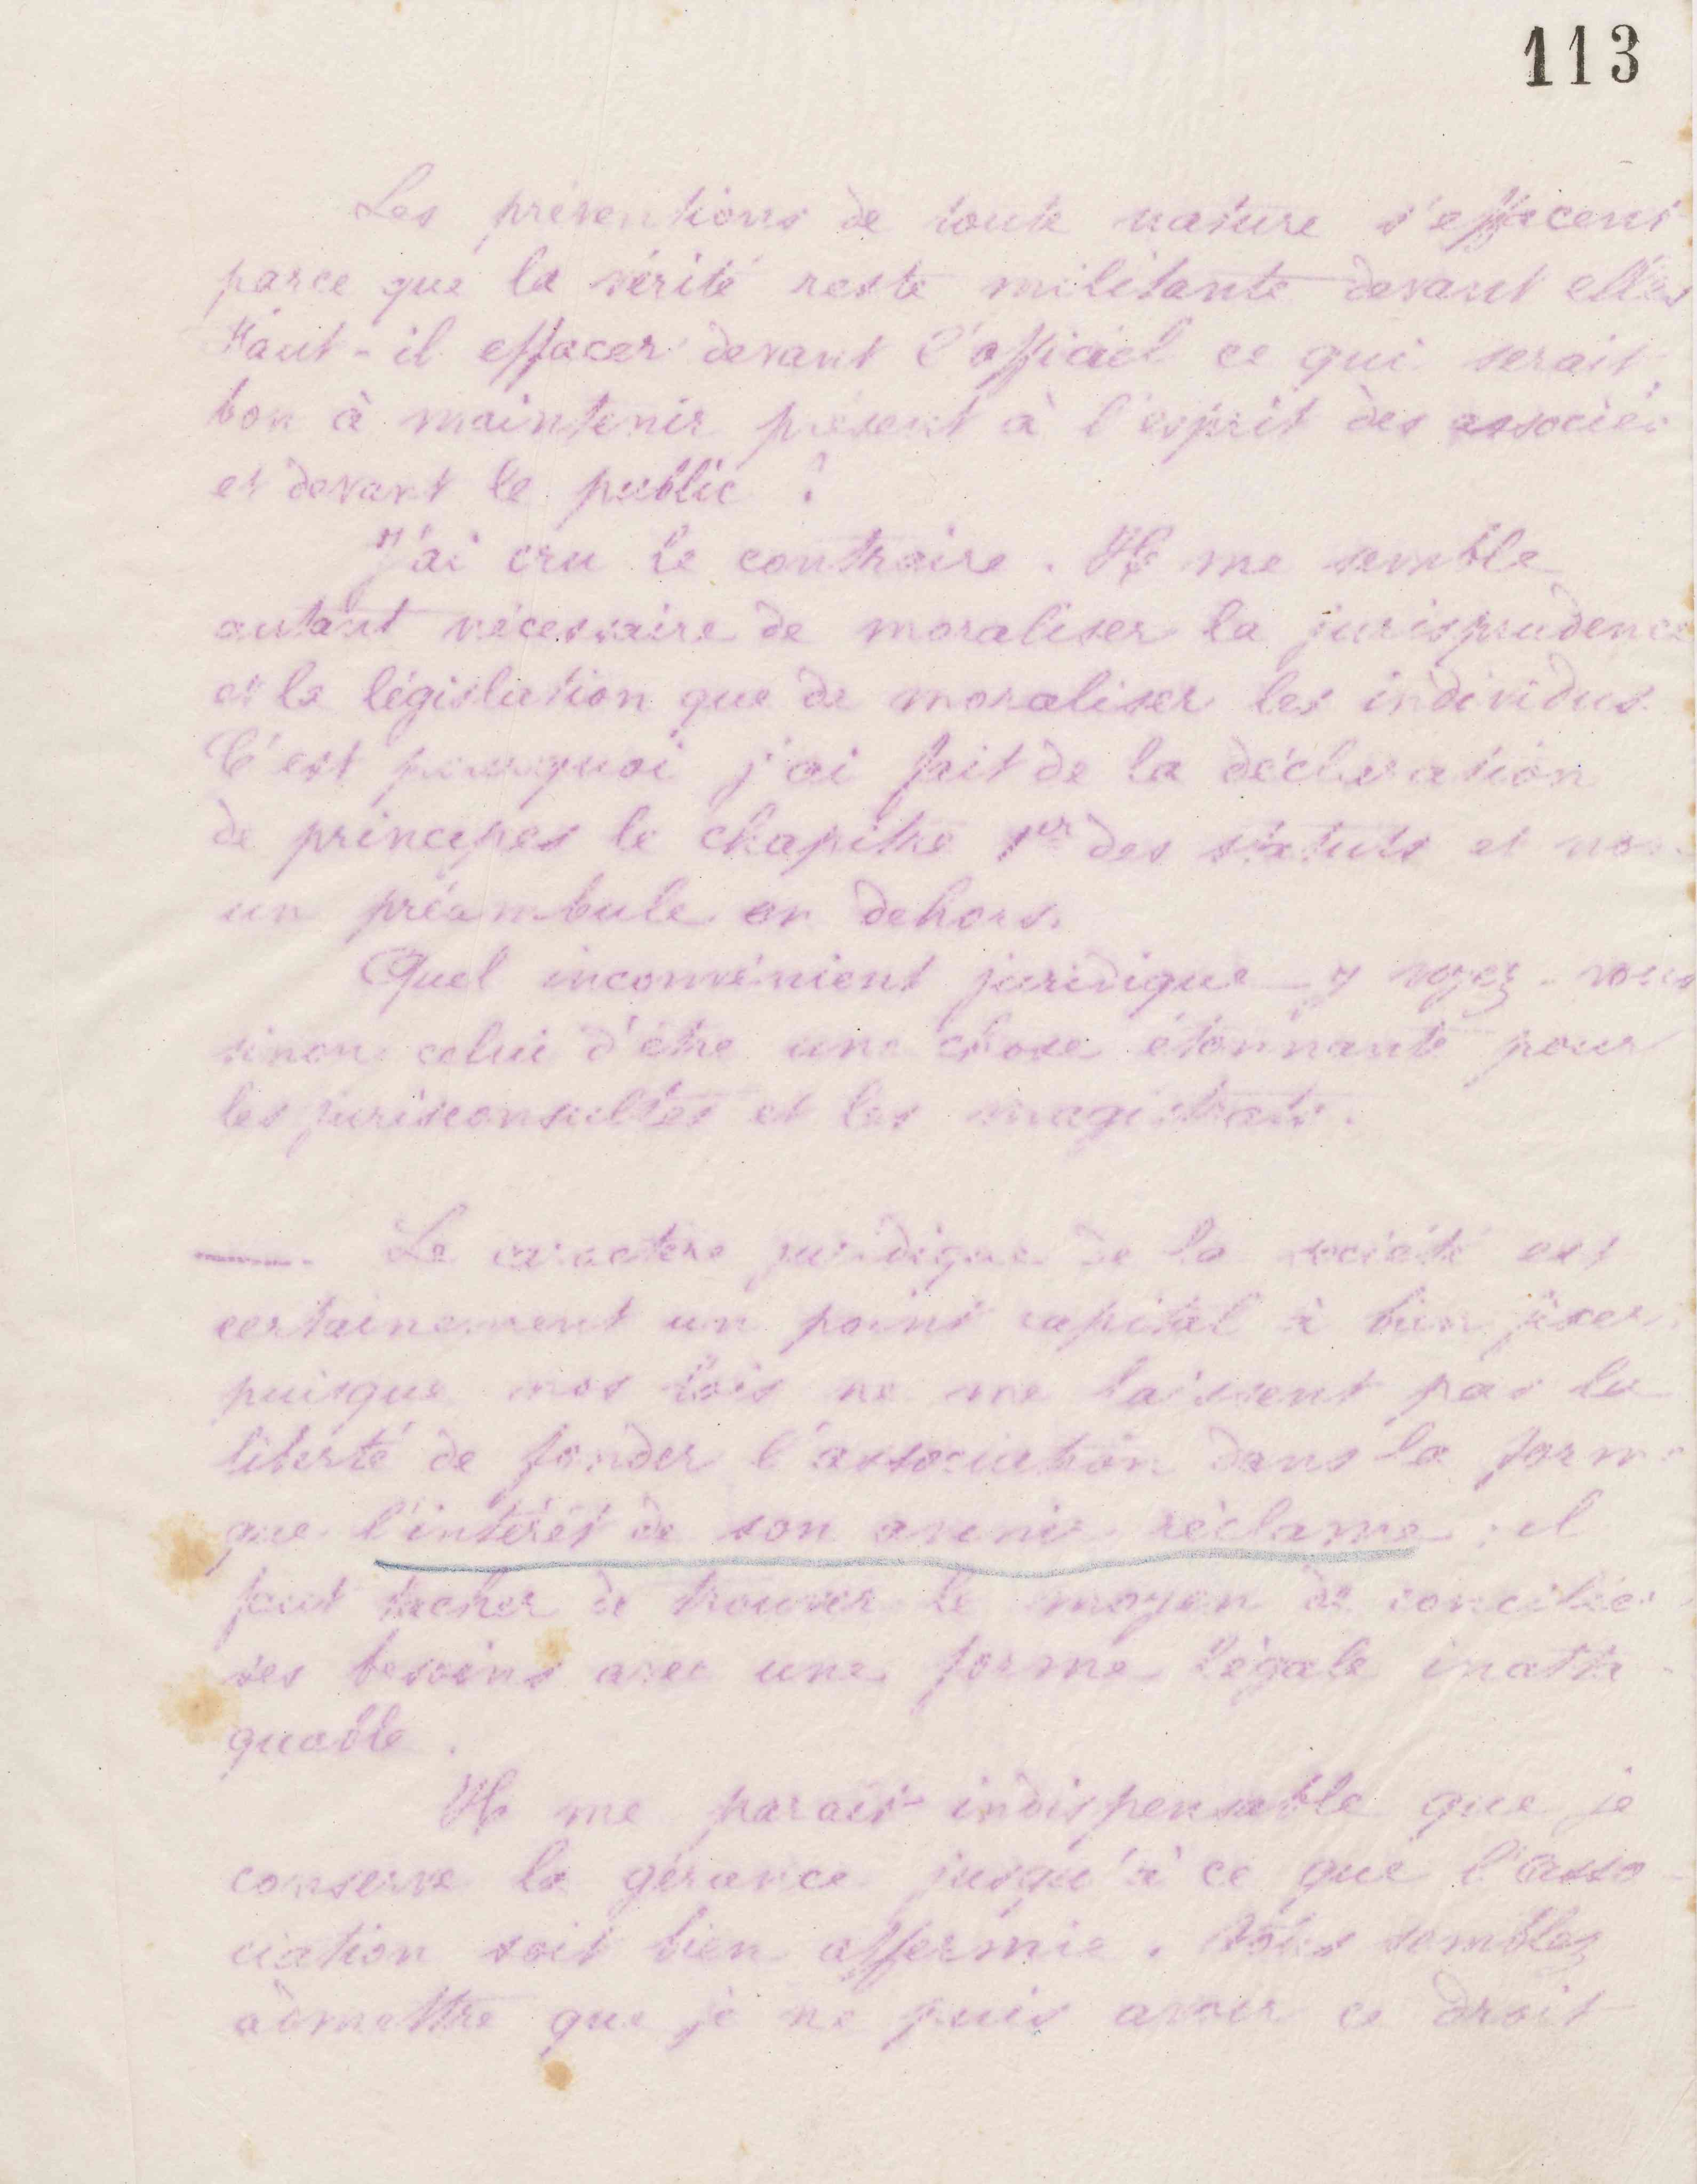 113
Les préventions de toute nature s'effacent
parce que la vérité reste militante devant elles
Faut-il effacer devant l'officiel ce qui serait
bon à maintenir présent à l'esprit des associés
et devant le public ?
J'ai cru le contraire. Il me semble
autant nécessaire de moraliser la jurisprudence
et la législation que de moraliser les individus.
C'est pourquoi j'ai fait de la déclaration
de principes le chapitre 1er des statuts et non
un préambule en dehors.
Quel inconvénient juridique y voyez-vous
sinon celui d'être une chose étonnante pour
les jurisconsultes et les magistrats.
Le caractère juridique de la société est
certainement un point capital à bien fixer,
puisque nos lois ne me laissent pas la
liberté de fonder l'association dans la forme
que l'intérêt de son avenir réclame ; il
faut tacher de trouver le moyen de concilier
ses besoins avec une forme légale inatta-
quable.
Il me parait indispensable que je
conserve la gérance jusqu'à ce que l'asso-
ciation soit bien affermie. Vous semblez
admettre que je ne puis avoir ce droit